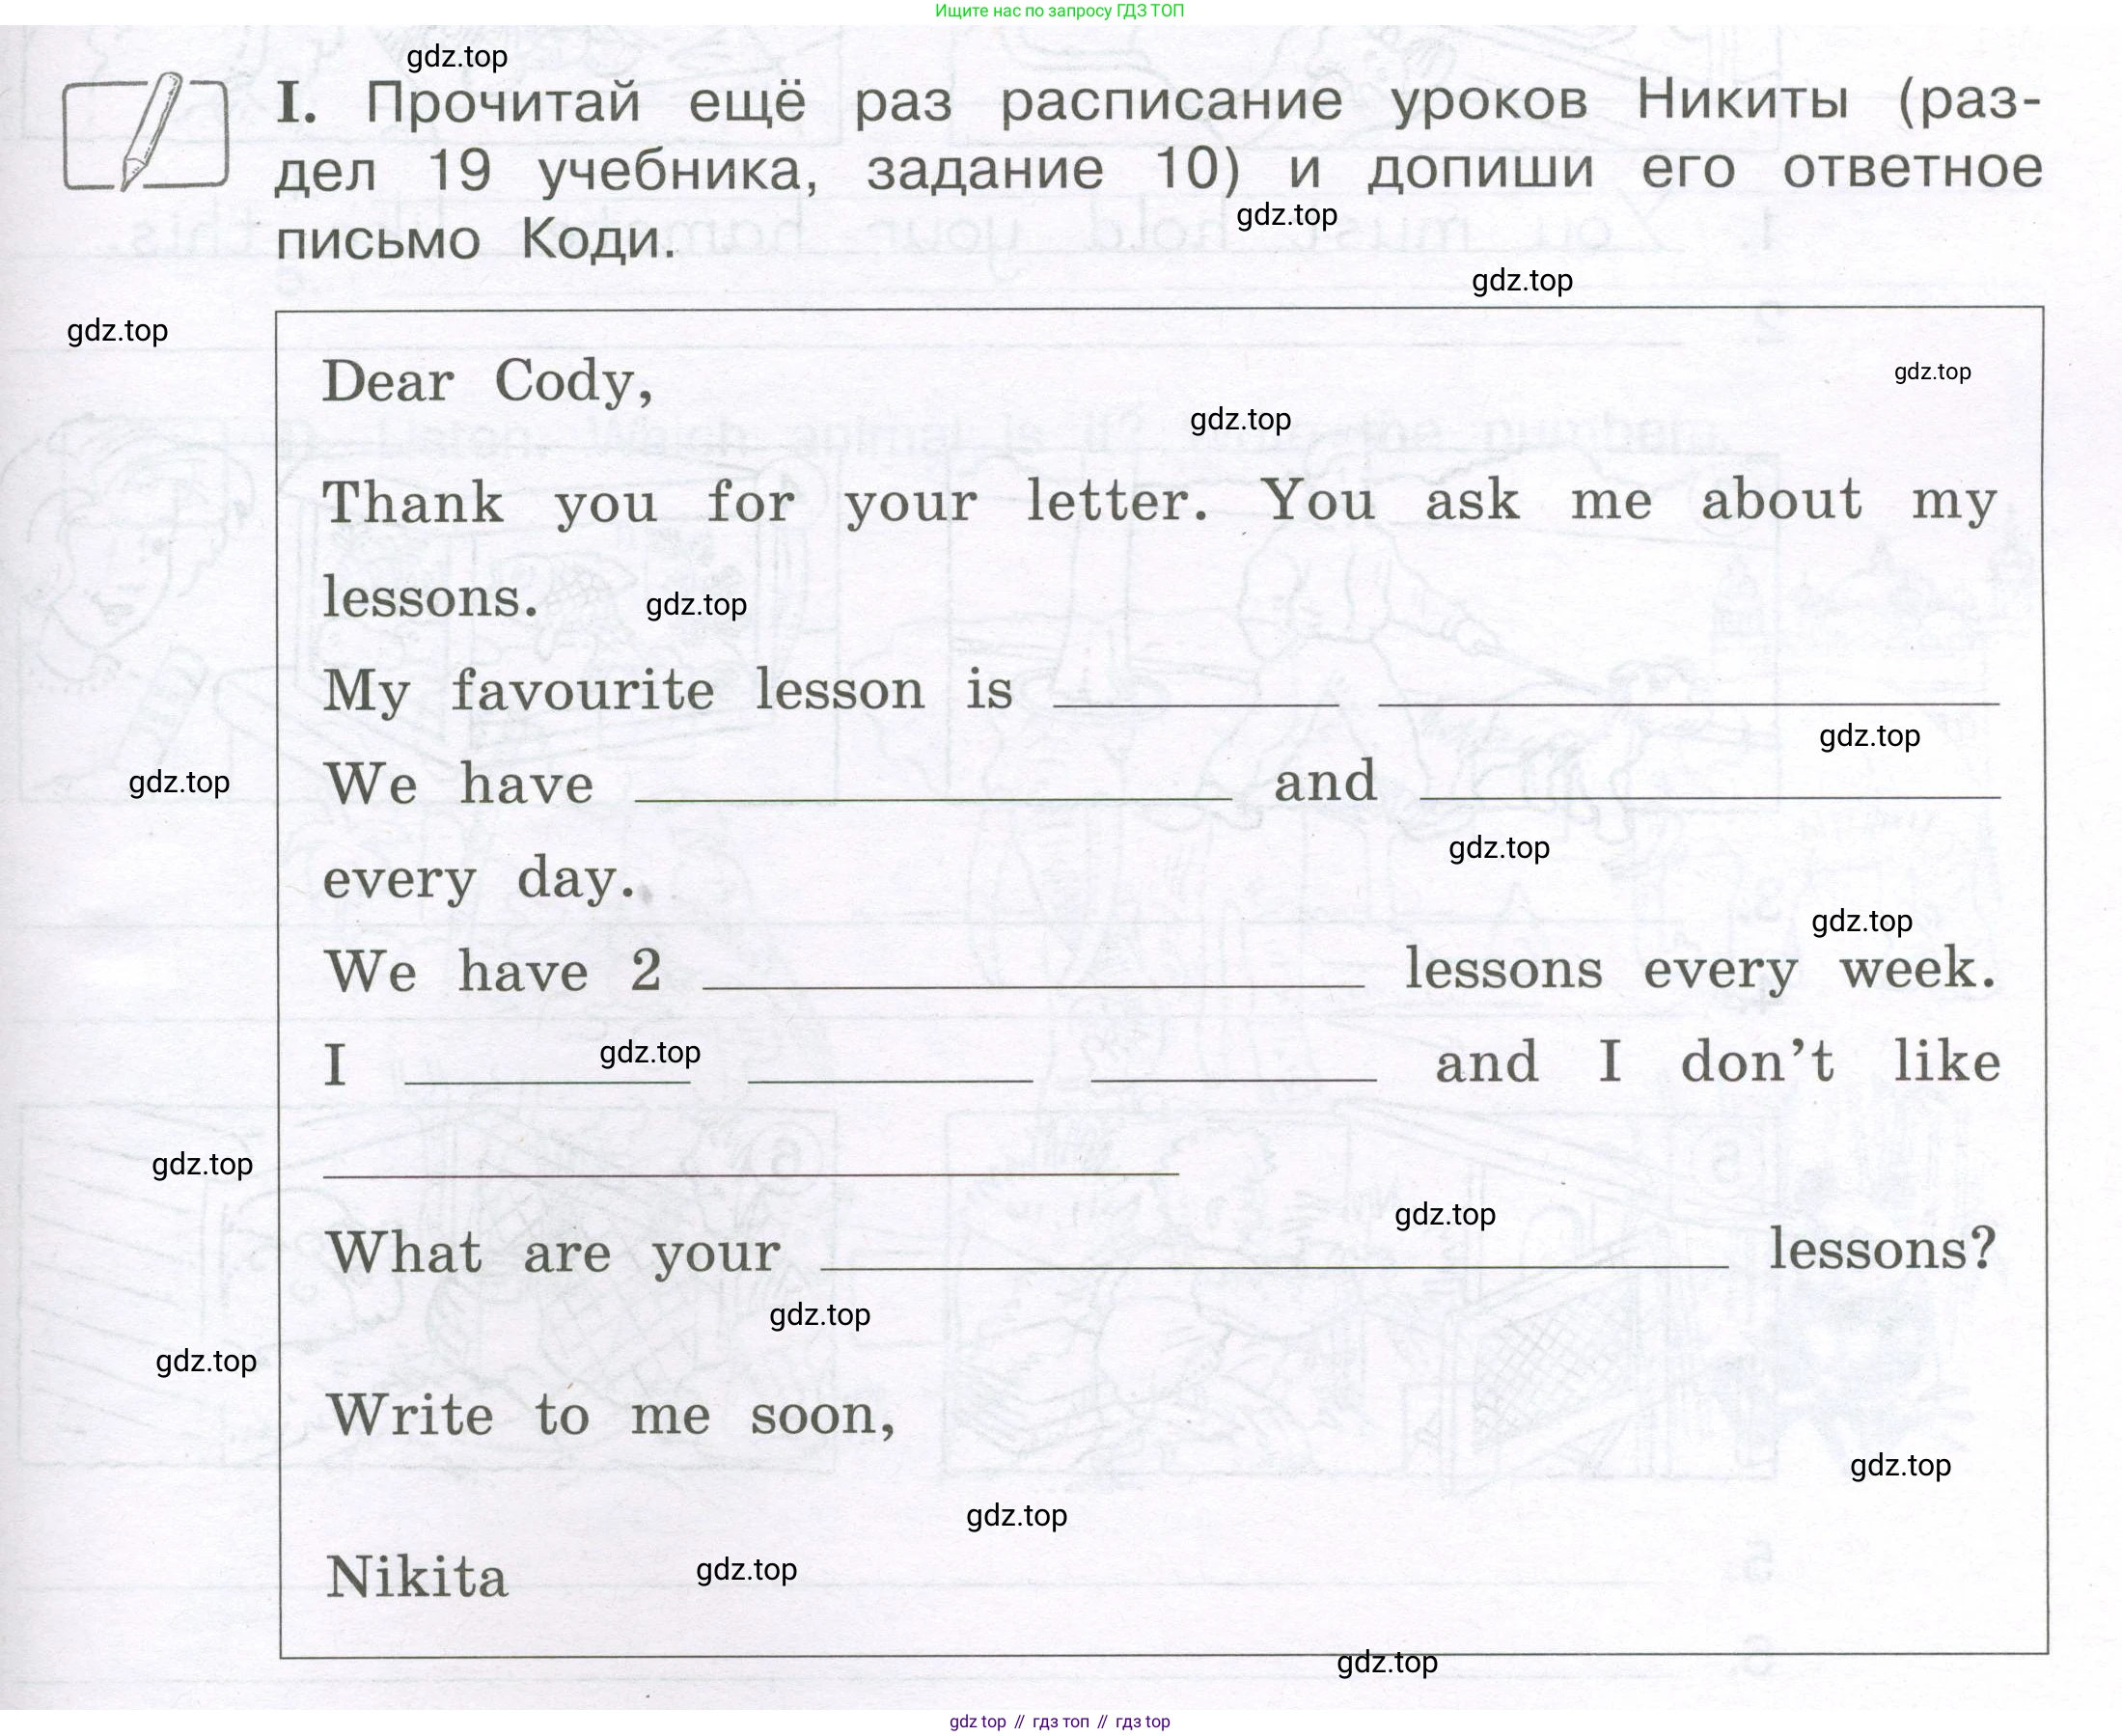 Ищите нас по запросу ГДЗ ТОП
gdz.top
I. Прочитай ещё раз расписание уроков Никиты (раз-
дел 19 учебника, задание 10) и допиши его ответное
gdz.top
письмо Коди.
gdz.top
gdz.top
Dear Cody,
gdz.top
gdz.top
Thank you for your letter. You ask me about my
lessons.
gdz.top
My favourite lesson is
gdz.top
We have and
gdz.top
gdz.top
every day.
gdz.top
We have 2 lessons every week.
I and I don't like
gdz.top
gdz.top
gdz.top
What are your lessons?
gdz.top
gdz.top
Write to me soon,
gdz.top
gdz.top
Nikita
gdz.top
gdz.top
gdz top // гдз топ // гдз top